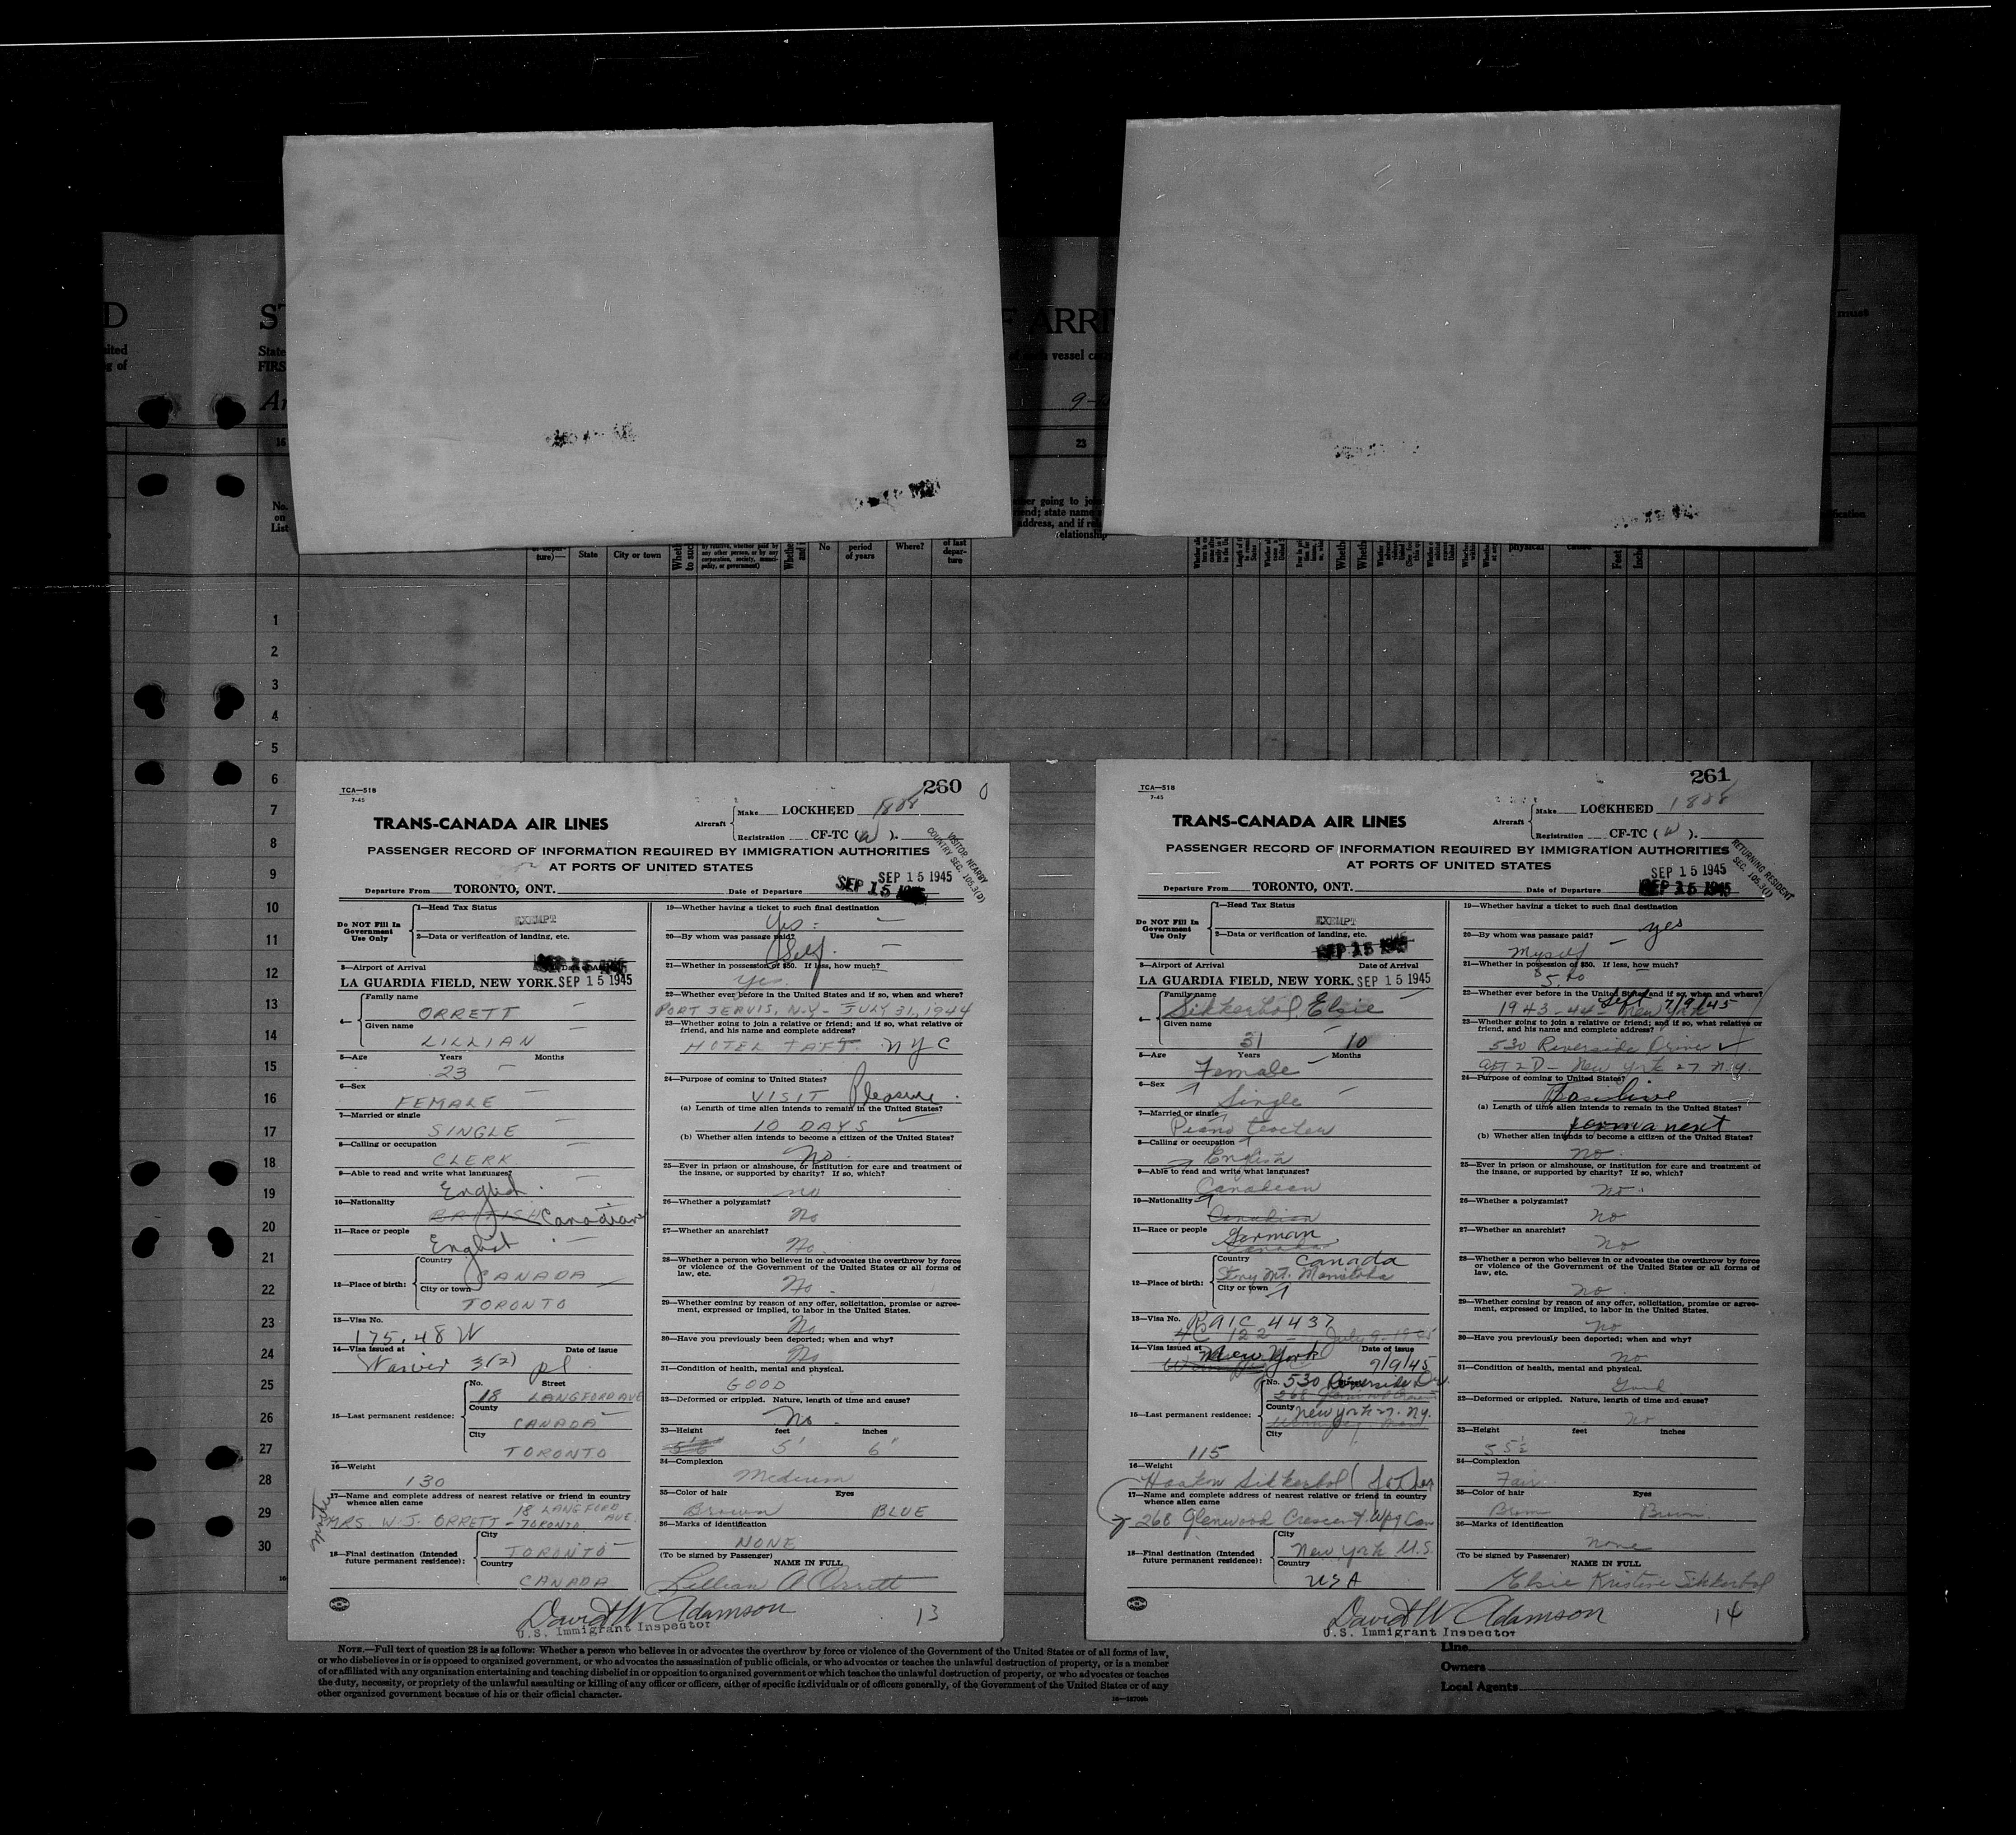 D
ST
F ARRI
must
ited
g of
State
FIRS
of each vessel
9-
16
23
No.
on
List
ether going to jo
end; state name
address, and if rel
relationship
State
City or town
No
period
of years
Where?
of last
depar-
ture
physical
cause
Feet
1
2
3
4
5
6
7
8
9
10
11
12
13
14
15
16
17
18
19
20
21
22
23
24
25
26
27
28
29
30
TCA—518
7-45
260
Aircraft
Make LOCKHEED 1808
Registration CF-TC (W).
TRANS-CANADA AIR LINES
PASSENGER RECORD OF INFORMATION REQUIRED BY IMMIGRATION AUTHORITIES
AT PORTS OF UNITED STATES
VISITOR NEARBY
COUNTRY SEC. 105.3(D)
SEP 15 1945
Departure From TORONTO, ONT. Date of Departure SEP 15 1945
Do NOT Fill In
Government
Use Only
1—Head Tax Status
EXEMPT
2—Data or verification of landing, etc.
3—Airport of Arrival Date of Arrival
LA GUARDIA FIELD, NEW YORK. SEP 15 1945
4—
Family name
ORRETT
Given name
LILLIAN
5—Age Years Months
23
6—Sex
FEMALE
7—Married or single
SINGLE
8—Calling or occupation
CLERK
9—Able to read and write what languages?
English
10—Nationality
BRITISH Canadian
11—Race or people
English
12—Place of birth:
Country
CANADA
City or town
TORONTO
13—Visa No.
175.48 W
14—Visa issued at Date of issue
Waiver 3(2) pl
15—Last permanent residence:
No. Street
18 LANGFORD AVE
County
CANADA
City
TORONTO
16—Weight
130
17—Name and complete address of nearest relative or friend in country
whence alien came
18 LANGFORD AVE.
Mother
MRS. W. J. ORRETT - TORONTO
18—Final destination (Intended
future permanent residence):
City
TORONTO
Country
CANADA
19—Whether having a ticket to such final destination
Yes
20—By whom was passage paid?
Self
21—Whether in possession of $50. If less, how much?
Yes
22—Whether ever before in the United States and if so, when and where?
PORT JERVIS, N.Y. - JULY 31, 1944
23—Whether going to join a relative or friend; and if so, what relative or
friend, and his name and complete address?
HOTEL TAFT. NYC
24—Purpose of coming to United States?
VISIT Pleasure
(a) Length of time alien intends to remain in the United States?
10 DAYS
(b) Whether alien intends to become a citizen of the United States?
No
25—Ever in prison or almshouse, or institution for cure and treatment of
the insane, or supported by charity? If so, which?
no
26—Whether a polygamist?
No
27—Whether an anarchist?
No
28—Whether a person who believes in or advocates the overthrow by force
or violence of the Government of the United States or all forms of
law, etc.
No
29—Whether coming by reason of any offer, solicitation, promise or agree-
ment, expressed or implied, to labor in the United States.
No
30—Have you previously been deported; when and why?
No
31—Condition of health, mental and physical.
GOOD
32—Deformed or crippled. Nature, length of time and cause?
No
33—Height feet inches
5'6" 5' 6"
34—Complexion
Medium
35—Color of hair Eyes
Brown BLUE
36—Marks of identification
NONE
(To be signed by Passenger) NAME IN FULL
Lillian A Orrett
David W Adamson
U.S. Immigrant Inspector
13
TCA—518
7-45
261
Aircraft
Make LOCKHEED 1808
Registration CF-TC (W).
TRANS-CANADA AIR LINES
PASSENGER RECORD OF INFORMATION REQUIRED BY IMMIGRATION AUTHORITIES
AT PORTS OF UNITED STATES
RETURNING RESIDENT
SEC. 105.3(1)
SEP 15 1945
Departure From TORONTO, ONT. Date of Departure SEP 15 1945
Do NOT Fill In
Government
Use Only
1—Head Tax Status
EXEMPT
2—Data or verification of landing, etc.
SEP 15 1945
3—Airport of Arrival Date of Arrival
LA GUARDIA FIELD, NEW YORK. SEP 15 1945
4—
Family name
Sikkerbol, Elsie
Given name
31 10
5—Age Years Months
Female
6—Sex
Single
7—Married or single
Piano teacher
8—Calling or occupation
English
9—Able to read and write what languages?
Canadian
10—Nationality
Canadian
11—Race or people
German
12—Place of birth:
Country Canada
Stony Mt. Manitoba
City or town
13—Visa No. RA1C 4437
4C 122 - July 9-1945
14—Visa issued at New York Date of issue
7/9/45
15—Last permanent residence:
No. 530 Riverside Dr.
County New York 27. NY.
City
115
16—Weight
Haakon Sikkerbol (father
17—Name and complete address of nearest relative or friend in country
whence alien came
268 Glenwood Crescent. Wpg Can
18—Final destination (Intended
future permanent residence):
City
New York U.S.
Country
USA
19—Whether having a ticket to such final destination
yes
20—By whom was passage paid?
Myself
21—Whether in possession of $50. If less, how much?
22—Whether ever before in the United States and if so, when and where?
Left 7/9/45
1943-44- New York
23—Whether going to join a relative or friend; and if so, what relative or
friend, and his name and complete address?
530 Riverside Drive
apt 2D - New York 27 N.Y.
24—Purpose of coming to United States?
(a) Length of time alien intends to remain in the United States?
permanent
(b) Whether alien intends to become a citizen of the United States?
no
25—Ever in prison or almshouse, or institution for cure and treatment of
the insane, or supported by charity? If so, which?
No
26—Whether a polygamist?
No
27—Whether an anarchist?
No
28—Whether a person who believes in or advocates the overthrow by force
or violence of the Government of the United States or all forms of
law, etc.
no
29—Whether coming by reason of any offer, solicitation, promise or agree-
ment, expressed or implied, to labor in the United States.
No
30—Have you previously been deported; when and why?
No
31—Condition of health, mental and physical.
Good
32—Deformed or crippled. Nature, length of time and cause?
No
33—Height feet inches
5 5½
34—Complexion
Fair
35—Color of hair Eyes
Brown Brown
36—Marks of identification
none
(To be signed by Passenger) NAME IN FULL
Elsie Kristine Sikkerbol
David W Adamson
U.S. Immigrant Inspector
14
NOTE.—Full text of question 28 is as follows: Whether a person who believes in or advocates the overthrow by force or violence of the Government of the United States or of all forms of law,
or who disbelieves in or is opposed to organized government, or who advocates the assassination of public officials, or who advocates or teaches the unlawful destruction of property, or is a member
of or affiliated with any organization entertaining and teaching disbelief in or opposition to organized government or which teaches the unlawful destruction of property, or who advocates or teaches
the duty, necessity, or propriety of the unlawful assaulting or killing of any officer or officers, either of specific individuals or of officers generally, of the Government of the United States or of any
other organized government because of his or their official character.
Line
Owners
Local Agents